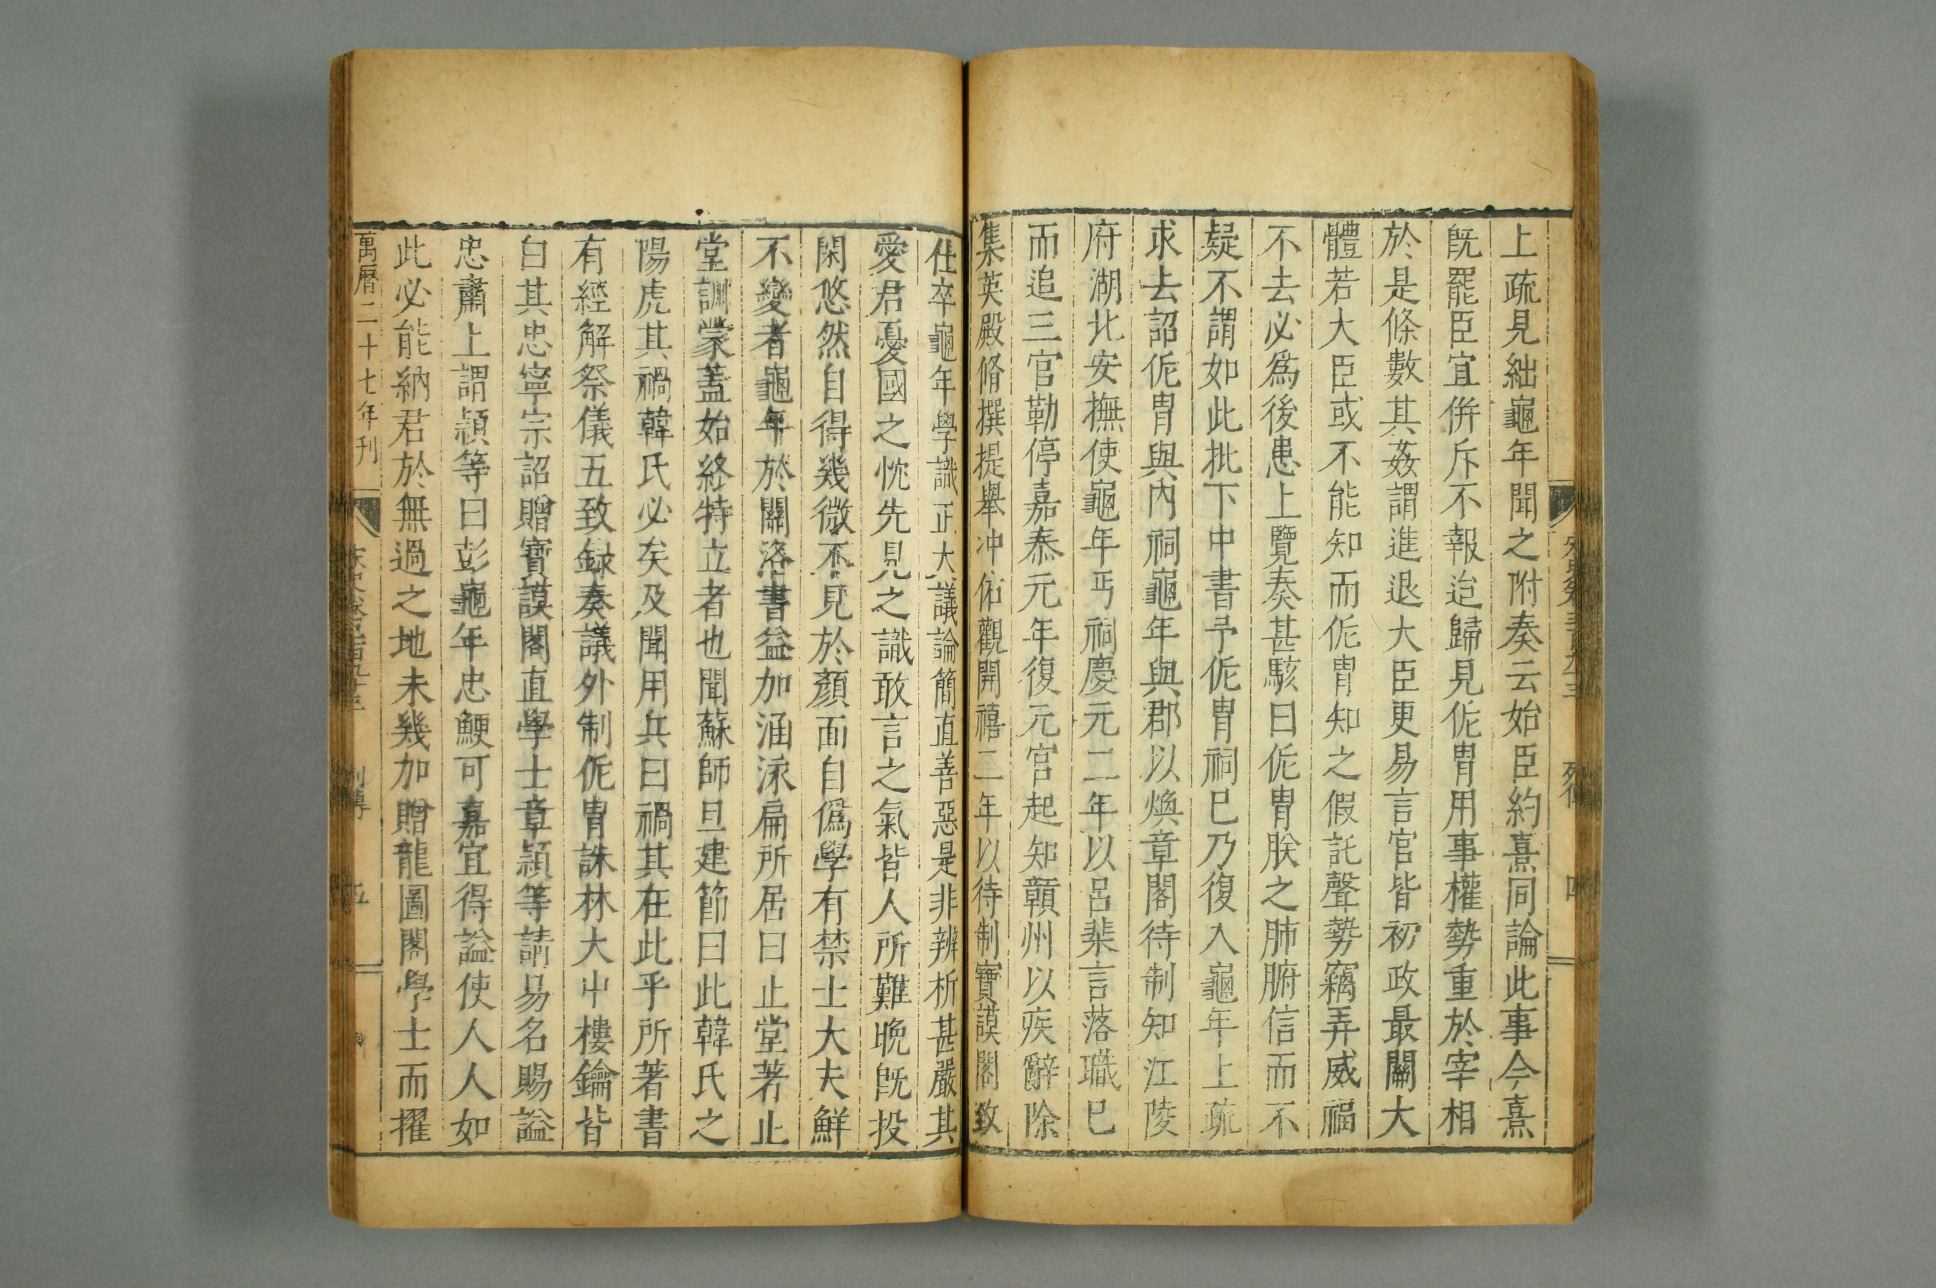 上疏見絀龜年聞之附奏云始臣約熹同論此事今熹
旣罷臣宜併斥不報迨歸見侂胄用事權勢重於宰相
於是條數其姦謂進退大臣更易言官皆初政最關大
體若大臣或不能知而侂胄知之假託聲勢竊弄威福
不去必爲後患上覽奏甚駭曰侂胄朕之肺腑信而不
疑不謂如此批下中書予侂胄祠巳乃復入龜年上疏
求去詔侂胄與內祠龜年與郡以煥章閣待制知江陵
府湖北安撫使龜年丐祠慶元二年以呂棐言落職巳
而追三官勒停嘉泰元年復元官起知贛州以疾辭除
集英殿脩撰提舉冲佑觀開禧二年以待制寶謨閣致
仕卒龜年學識正大議論簡直善惡是非辨析甚嚴其
愛君憂國之忱先見之識敢言之氣皆人所難晩旣投
閑悠然自得幾微不見於顏面自僞學有禁士大夫鮮
不變者龜年於關洛書益加涵泳扁所居曰止堂著止
堂訓蒙蓋始終特立者也聞蘇師旦建節曰此韓氏之
陽虎其禍韓氏必矣及聞用兵曰禍其在此乎所著書
有經解祭儀五致録奏議外制侂胄誅林大中樓鑰皆
白其忠寧宗詔贈寶謨閣直學士章頴等請易名賜謚
忠肅上謂頴等曰彭龜年忠鯁可嘉宜得謚使人人如
此必能納君於無過之地未幾加贈龍圖閣學士而擢
萬曆二十七年刊